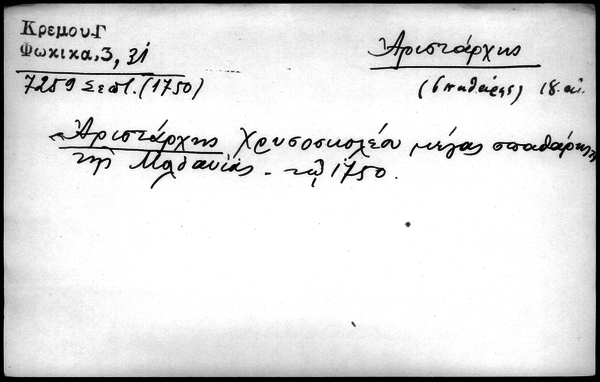 Κρεμου-Γ
Φωκικα,3, 31
7259 Σεπτ. (1750)
Ἀριστάρχης
(σπαθάρης) 18. αἰ.
Ἀριστάρχης Χρυσοσκολέου μέγας σπαθάρης
τῆς Μολδαυίας - τῷ 1750.